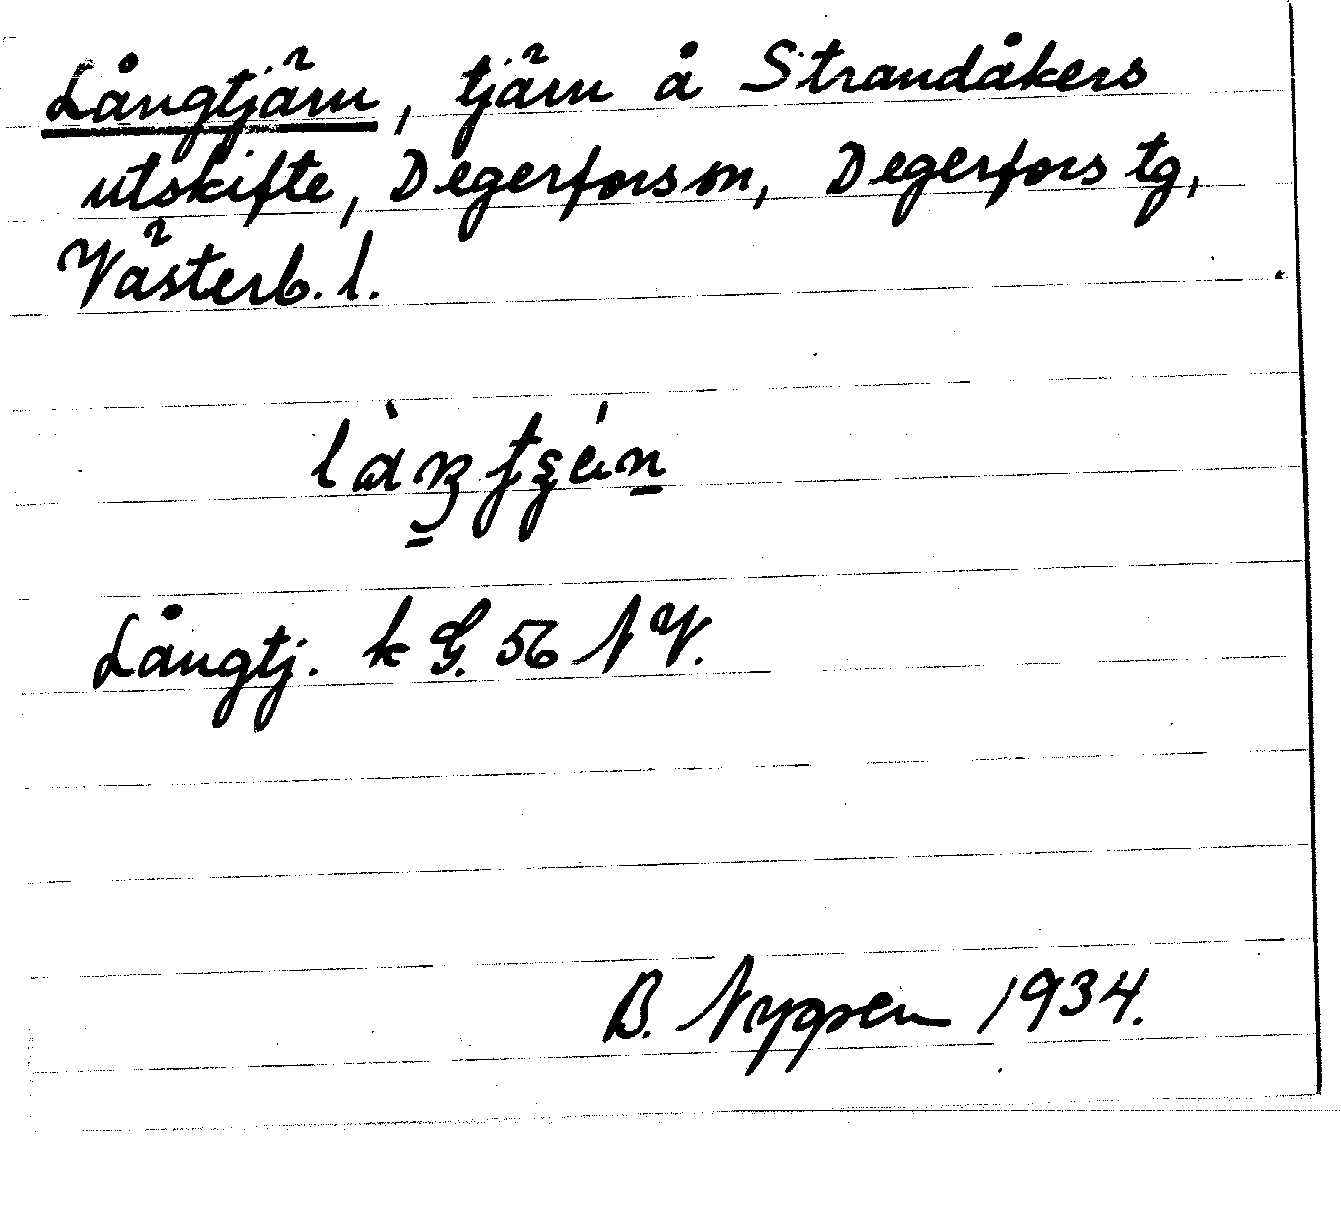 Långtjärn, tjärn å Strandåkers
utskifte, Degerfors sn, Degerfors tg,
Västerb. l.
Långtj. k G. 56 NV.
B. 1934.